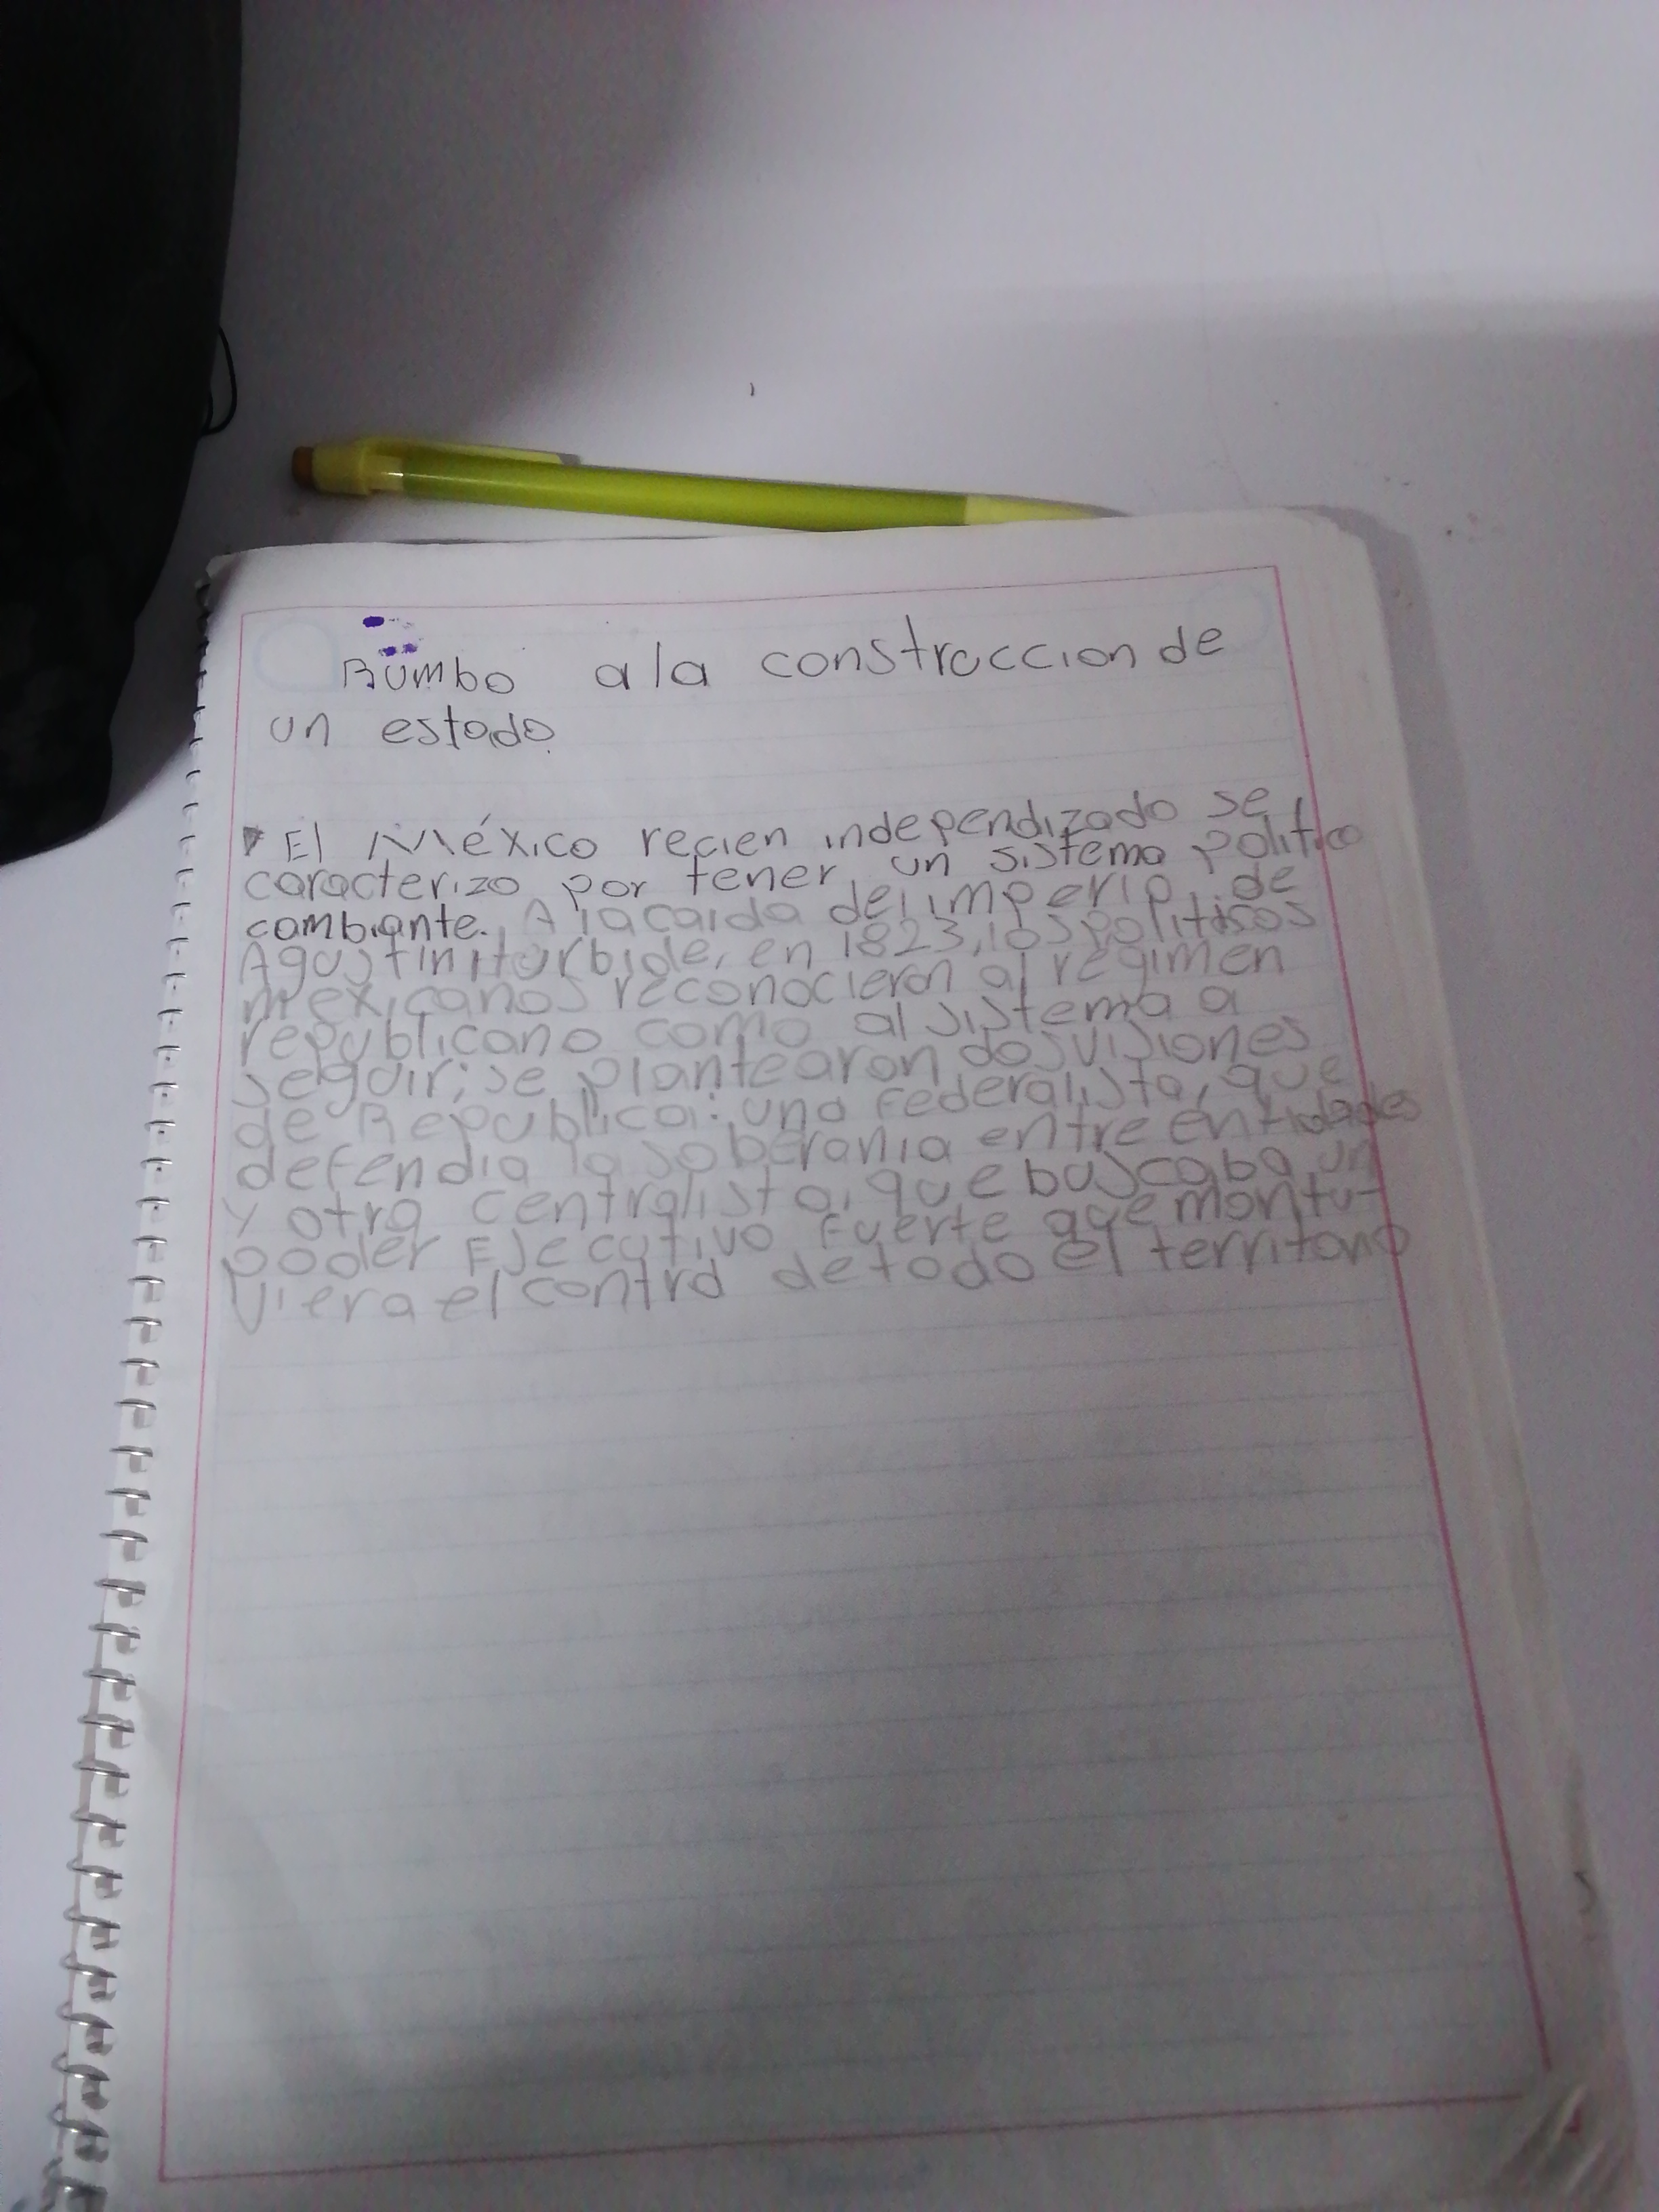 Rumbo a la construccion de
un estado
El México recien independizado se
caracterizo por tener un sistema politico
cambiante. A la caida del imperio de
Agustin iturbide, en 1823, los politicos
mexicanos reconocieron al régimen
republicano como al sistema a
seguir; se plantearon dos visiones
de Republica: una Federalista, que
defendia la soberania entre entidades
y otra centralista, que buscaba un
poder Ejecutivo fuerte que montu-
viera el control de todo el territorio